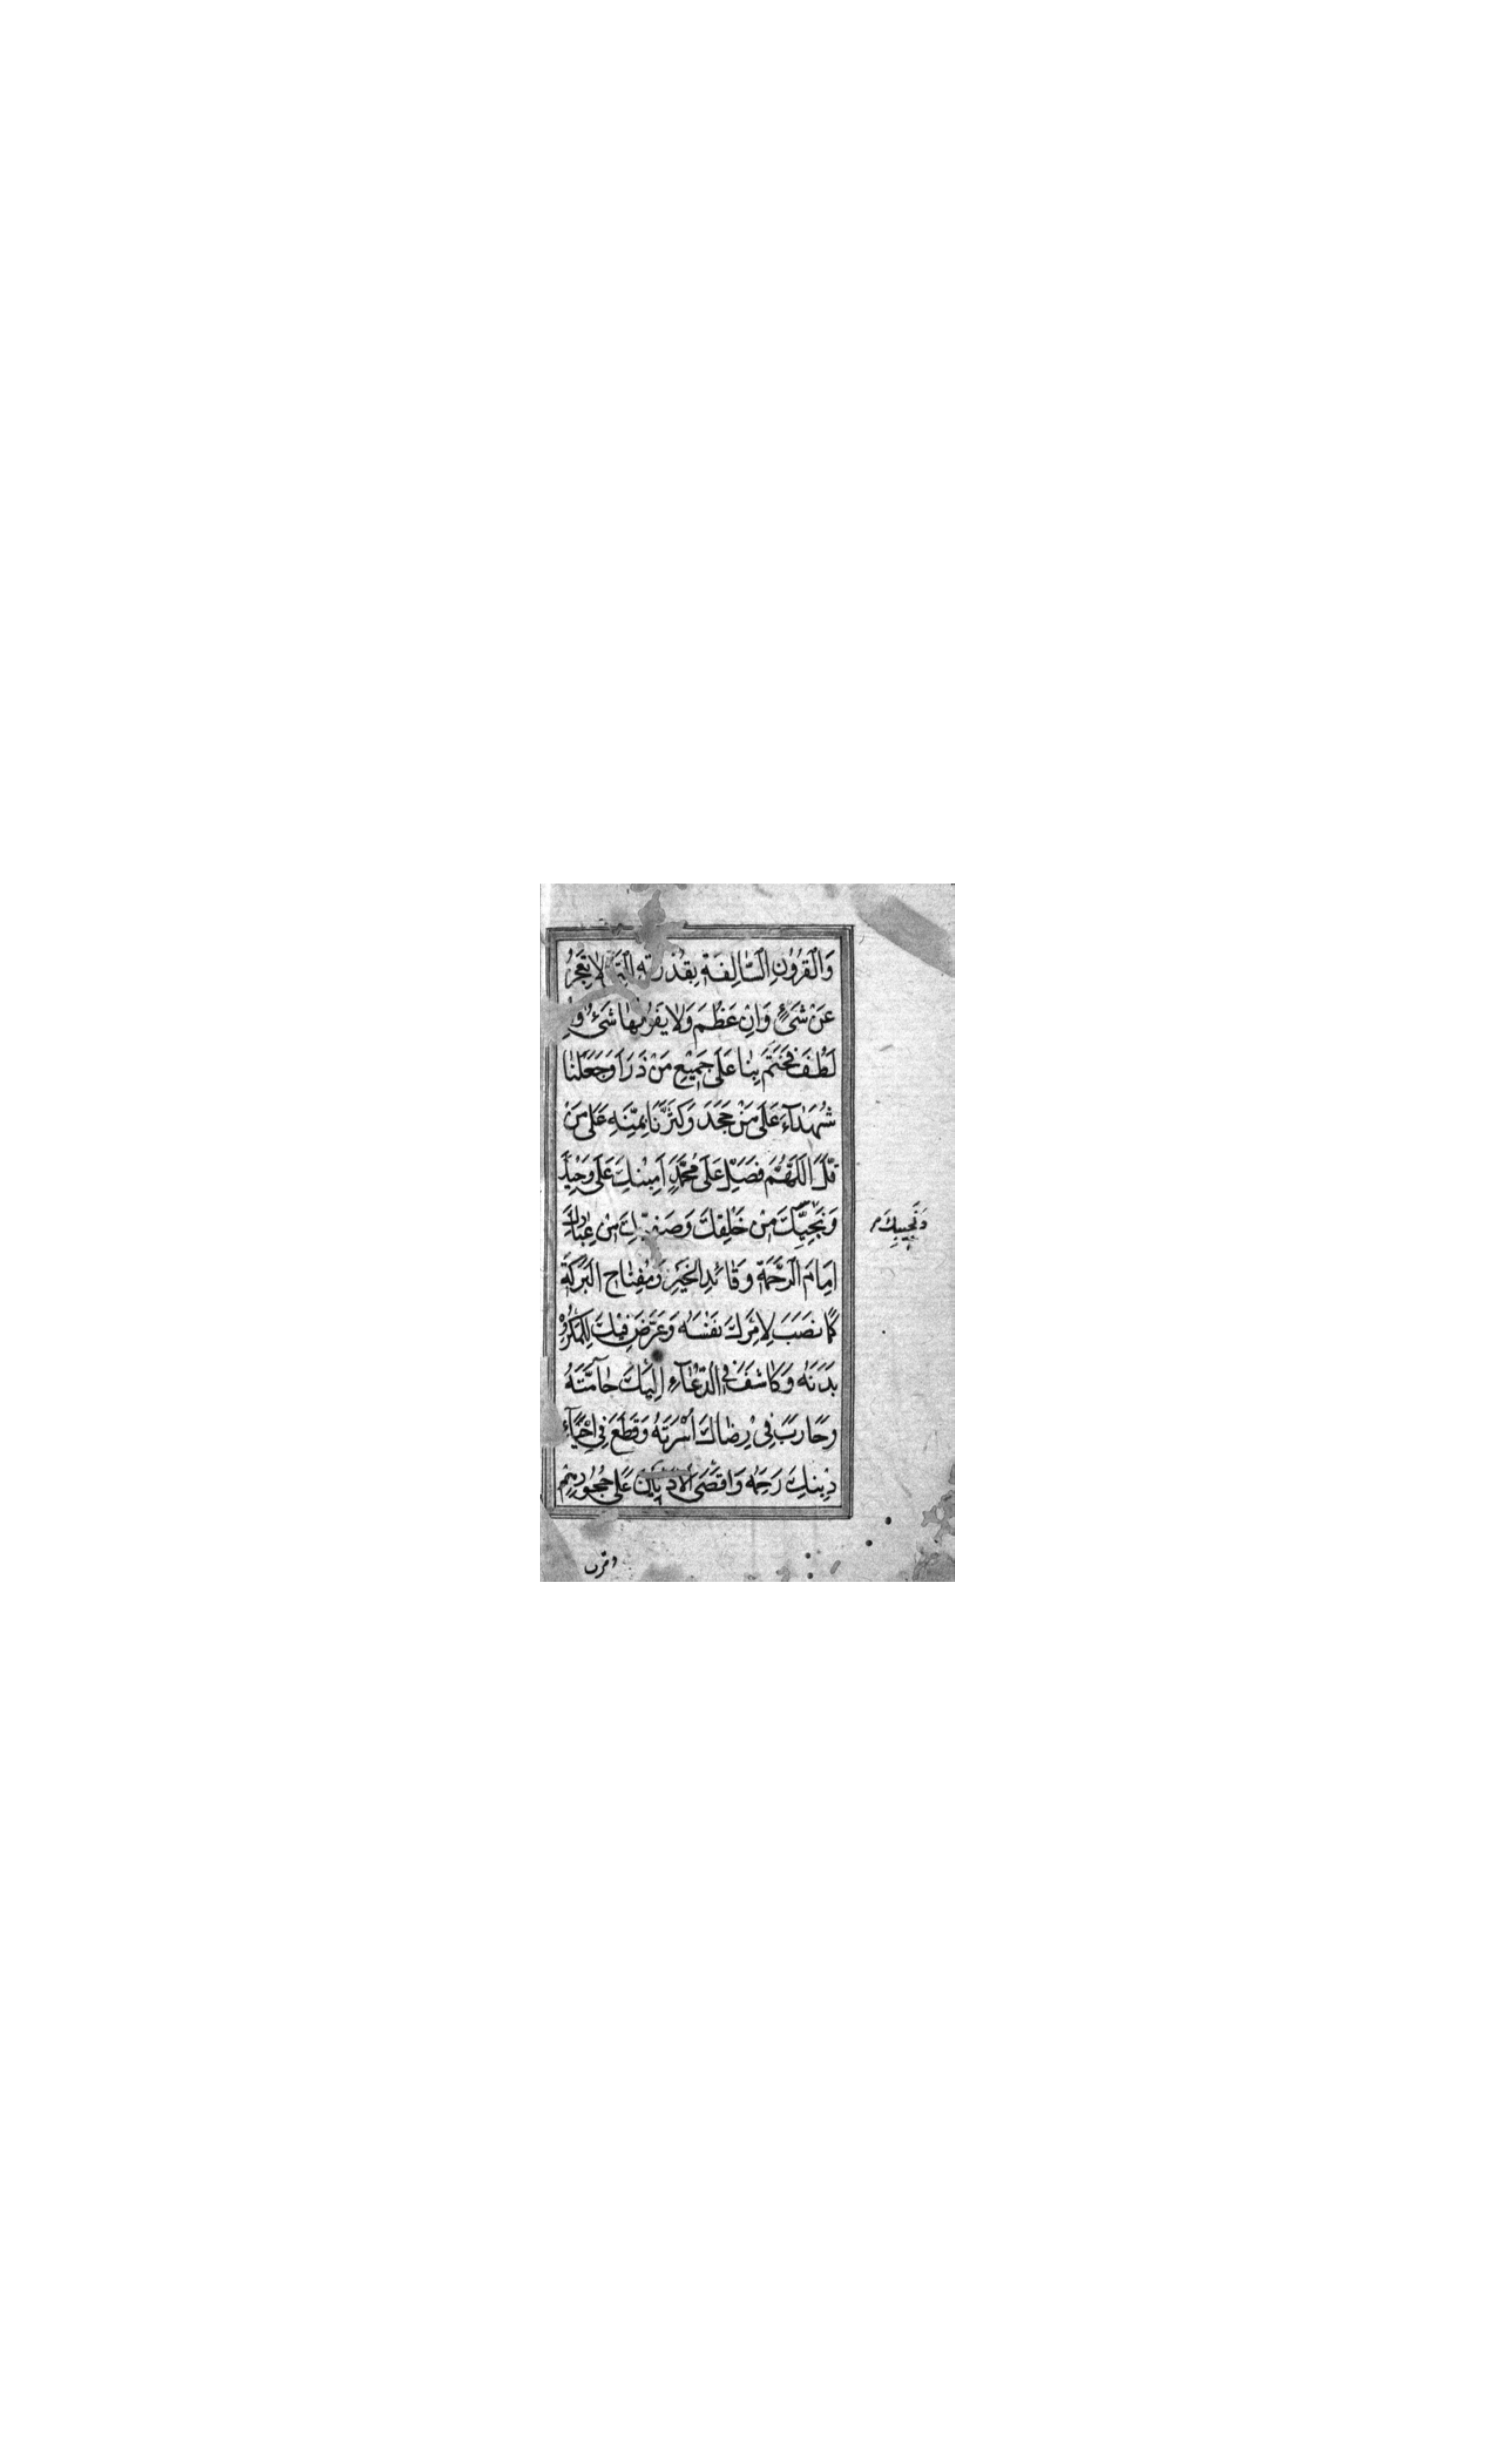 وَالْقُرُونِ السَّالِفَةِ بِقُدْرَتِهِ الَّتِي لَا تَعْجِزُ
عَنْ شَيْءٍ وَاِنْ عَظُمَ وَلَا يَفُوتُهَا شَيْءٌ وَاِنْ
لَطُفَ فَخَتَمَ بِنَا عَلَى جَمِيعِ مَنْ ذَرَأَ وَجَعَلَنَا
شُهَدَآءَ عَلَى مَنْ جَحَدَ وَكَثَّرَنَا بِمَنِّهِ عَلَى مَنْ
قَلَّ اَللّٰهُمَّ فَصَلِّ عَلَى مُحَمَّدٍ اَمِينِكَ عَلَى وَحْيِكَ
وَنَجِيِّكَ مِنْ خَلْقِكَ وَصَفِيِّكَ مِنْ عِبَادِكَ
وَنَجِيبِكَ م
اِمَامِ الرَّحْمَةِ وَقَائِدِ الْخَيْرِ وَمِفْتَاحِ الْبَرَكَةِ
كَمَا نَصَبَ لِاَمْرِكَ نَفْسَهُ وَعَرَّضَ فِيكَ لِلْمَكْرُوهِ
بَدَنَهُ وَكَاشَفَ فِي الدُّعَآءِ اِلَيْكَ حَآمَّتَهُ
وَحَارَبَ فِي رِضَاكَ اُسْرَتَهُ وَقَطَعَ فِي اِحْيَآءِ
دِينِكَ رَحِمَهُ وَاَقْصَى الْاَدْنَيْنَ عَلَى جُحُودِهِمْ
وقرب